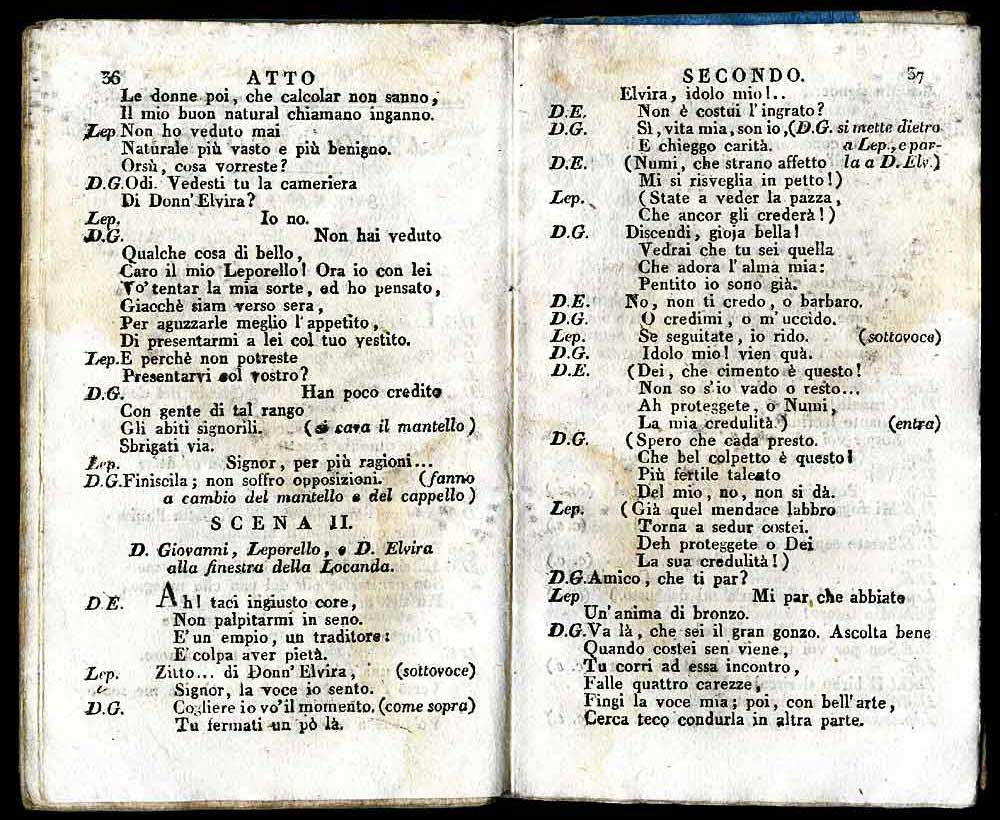 36 ATTO
Le donne poi, che calcolar non sanno,
Il mio buon natural chiamano inganno.
Lep. Non ho veduto mai
Naturale più vasto e più benigno.
Orsù, cosa vorreste?
D.G. Odi. Vedesti tu la cameriera
Di Donn' Elvira?
Lep. Io no.
D.G. Non hai veduto
Qualche cosa di bello,
Caro il mio Leporello! Ora io con lei
Vo' tentar la mia sorte, ed ho pensato,
Giacchè siam verso sera,
Per aguzzarle meglio l'appetito,
Di presentarmi a lei col tuo vestito.
Lep. E perchè non potreste
Presentarvi col vostro?
D.G. Han poco credito
Con gente di tal rango
Gli abiti signorili. (si cava il mantello)
Sbrigati via.
Lep. Signor, per più ragioni...
D.G. Finiscila; non soffro opposizioni. (fanno
a cambio del mantello e del cappello)
SCENA II.
D. Giovanni, Leporello, e D. Elvira
alla finestra della Locanda.
D.E. Ah! taci ingiusto core,
Non palpitarmi in seno.
E' un empio, un traditore:
E' colpa aver pietà.
Lep. Zitto... di Donn' Elvira, (sottovoce)
Signor, la voce io sento.
D.G. Cogliere io vo' il momento, (come sopra)
Tu fermati un pò là.
SECONDO. 37
Elvira, idolo mio!..
D.E. Non è costui l'ingrato?
D.G. Sì, vita mia, son io, (D.G. si mette dietro
E chieggo carità. a Lep., e par-
D.E. (Numi, che strano affetto la a D. Elv.)
Mi si risveglia in petto!)
Lep. (State a veder la pazza,
Che ancor gli crederà!)
D.G. Discendi, gioja bella!
Vedrai che tu sei quella
Che adora l'alma mia:
Pentito io sono già.
D.E. No, non ti credo, o barbaro.
D.G. O credimi, o m'uccido.
Lep. Se seguitate, io rido. (sottovoce)
D.G. Idolo mio! vien quà.
D.E. (Dei, che cimento è questo!
Non so s'io vado o resto...
Ah proteggete, o Numi,
La mia credulità.) (entra)
D.G. (Spero che cada presto.
Che bel colpetto è questo!
Più fertile talento
Del mio, no, non si dà.
Lep. (Già quel mendace labbro
Torna a sedur costei.
Deh proteggete o Dei
La sua credulità!)
D.G. Amico, che ti par?
Lep Mi par che abbiate
Un' anima di bronzo.
D.G. Va là, che sei il gran gonzo. Ascolta bene
Quando costei sen viene,
Tu corri ad essa incontro,
Falle quattro carezze,
Fingi la voce mia; poi, con bell'arte,
Cerca teco condurla in altra parte.